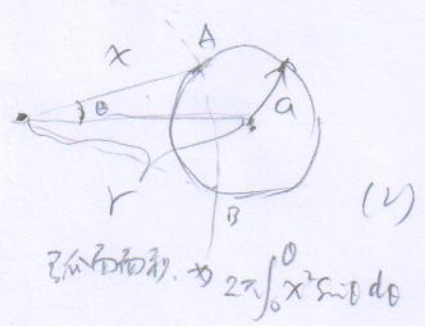 A
x
θ
a
r
B
(2)
弧面面积 → 2π∫₀^θ x² sinθ dθ